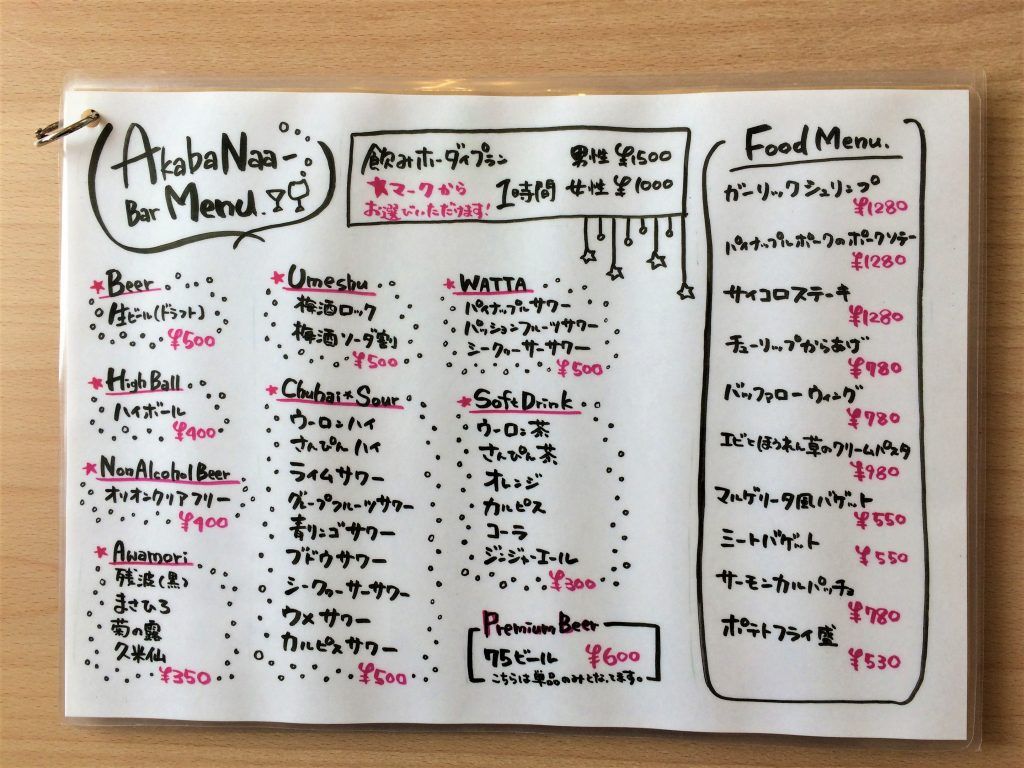 AkabaNaa-
Bar Menu.
飲みホーダイプラン
★マークから
お選びいただけます!
1時間
男性 ¥1500
女性 ¥1000
★Beer
生ビール(ドラフト)
¥500
★HighBall
ハイボール
¥400
★NonAlcoholBeer
オリオンクリアフリー
¥400
★Awamori
残波(黒)
まさひろ
菊の露
久米仙
¥350
★Umeshu
梅酒ロック
梅酒ソーダ割
¥500
★Chuhai★Sour
ウーロンハイ
さんぴんハイ
ライムサワー
グレープフルーツサワー
青リンゴサワー
ブドウサワー
シークヮーサーサワー
ウメサワー
カルピスサワー
¥500
★WATTA
パイナップルサワー
パッションフルーツサワー
シークヮーサーサワー
¥500
★SoftDrink
ウーロン茶
さんぴん茶
オレンジ
カルピス
コーラ
ジンジャーエール
¥300
PremiumBeer
75ビール ¥600
こちらは単品のみとなってます。
Food Menu.
ガーリックシュリンプ
¥1280
パイナップルポークのポークソテー
¥1280
サイコロステーキ
¥1280
チューリップからあげ
¥780
バッファローウィング
¥780
エビとほうれん草のクリームパスタ
¥980
マルゲリータ風バゲット
¥550
ミートバゲット
¥550
サーモンカルパッチョ
¥780
ポテトフライ盛
¥530